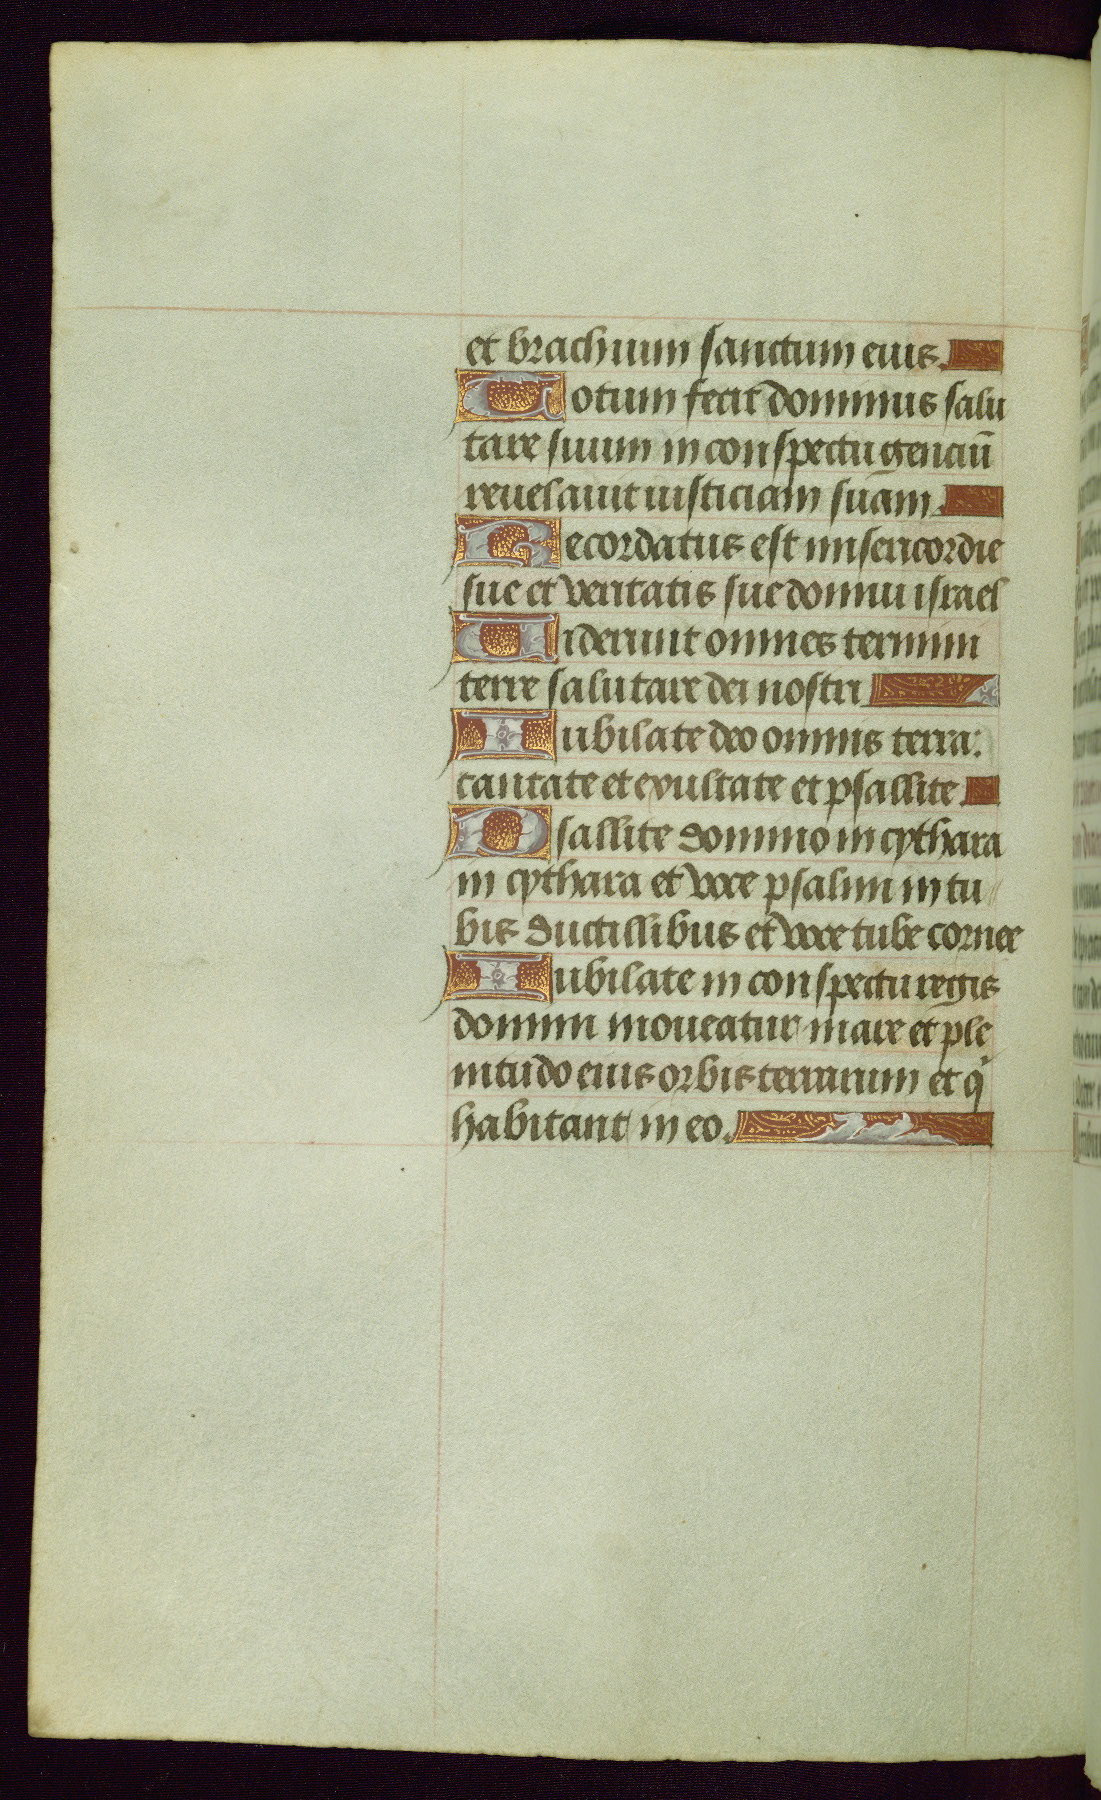 et brachium sanctum eius.
Totum fecit dominus salu
tare suum in conspectu genciū
reuelauit iusticiam suam.
Recordatus est misericordie
sue et veritatis sue domui israel
Viderunt omnes termini
terre salutare dei nostri
Iubilate deo omnis terra:
cantate et exultate et psallite
Psallite domino in cythara
in cythara et voce psalmi in tu
bis ductilibus et voce tube cornee
Iubilate in conspectu regis
domini moueatur mare et ple
nitudo eius orbis terrarum et qͥ
habitant in eo.